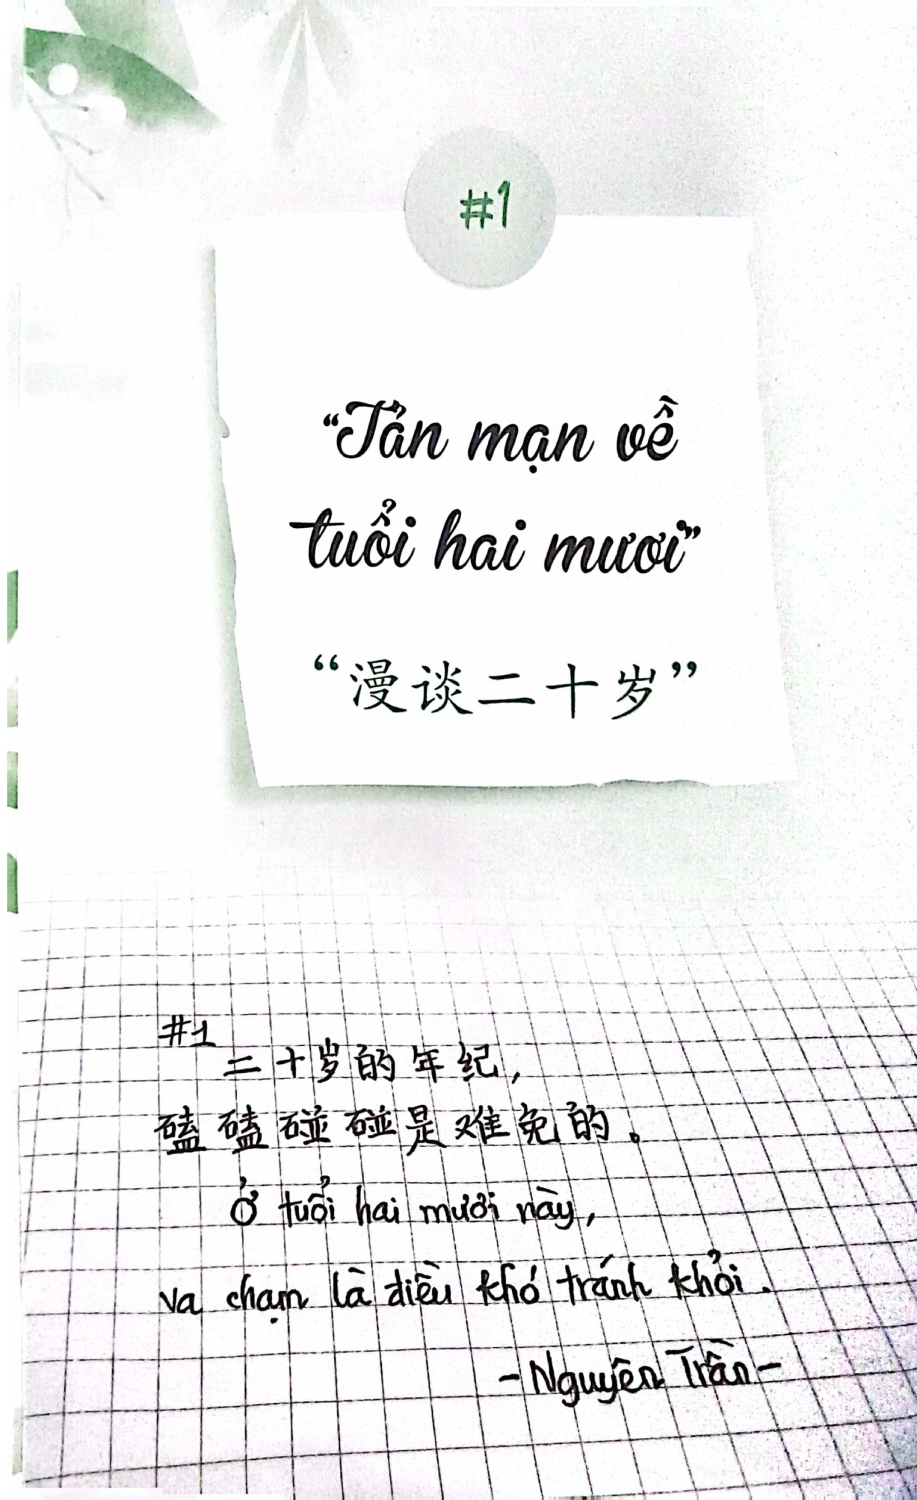 #1
“Tản mạn về
tuổi hai mươi”
“漫谈二十岁”
#1
二十岁的年纪,
磕磕碰碰是难免的。
Ở tuổi hai mươi này,
va chạm là điều khó tránh khỏi.
- Nguyên Trần -